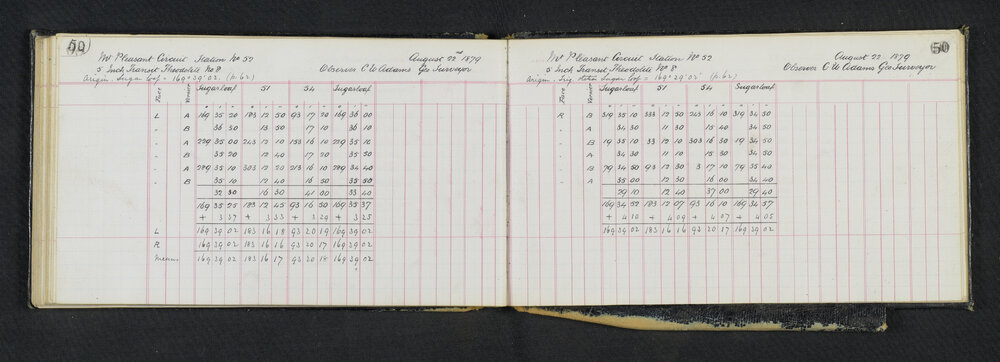 50
Mt Pleasant Circuit Station No 52 August 22nd 1879
5 Inch Transit Theodolite No 8 Observer C W Adams Geo Surveyor
Origin, Sugar Loaf = 169° 39' 02. (p. 62)
Face Vernier Sugarloaf 51 54 Sugarloaf
L A 169 35 20 183 12 50 93 17 20 169 36 00
" B 36 30 13 50 17 30 36 10
" A 229 35 00 243 12 10 153 16 10 229 35 10
" B 35 20 12 40 17 20 35 50
" A 289 35 10 303 12 20 213 16 10 289 34 40
" B 35 10 12 40 16 50 35 50
32 30 16 30 41 00 33 40
169 35 25 183 12 45 93 16 50 169 35 37
+ 3 37 + 3 33 + 3 29 + 3 25
L 169 39 02 183 16 18 93 20 19 169 39 02
R 169 39 02 183 16 16 93 20 17 169 39 02
Means 169 39 02 183 16 17 93 20 18 169 39 02
50
Mt Pleasant Circuit Station No 52 August 22 1879
5 Inch Transit Theodolite No 8 Observer C W Adams Geo Surveyor
Origin, Trig Station Sugar Loaf = 169° 39' 02" (p. 62)
Face Vernier Sugarloaf 51 54 Sugarloaf
R B 319 35 10 333 12 50 243 16 10 319 34 50
" A 34 30 11 30 15 40 34 50
" B 19 35 10 33 12 10 303 16 50 19 34 50
" A 34 30 11 10 15 30 34 50
" B 79 34 50 93 12 30 3 17 10 79 35 40
" A 35 00 12 30 16 00 34 40
29 10 12 40 37 00 29 40
169 34 52 183 12 07 93 16 10 169 34 57
+ 4 10 + 4 09 + 4 07 + 4 05
169 39 02 183 16 16 93 20 17 169 39 02